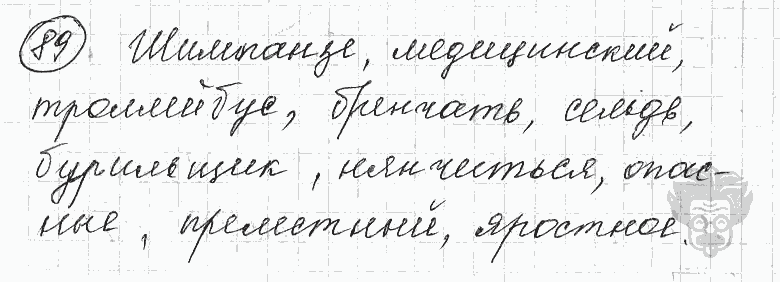 89 Шимпанзе, медицинский,
троллейбус, бренчать, сельдь,
бурильщик, нянчиться, опас-
ные, прелестный, яростное.